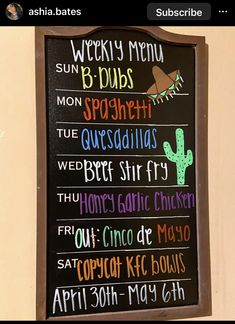 ashia.bates
Subscribe
Weekly Menu
SUN B-Dubs
MON Spaghetti
TUE Quesadillas
WED Beef Stir fry
THU Honey Garlic Chicken
FRI Out: Cinco de Mayo
SAT Copycat KFC bowls
April 30th - May 6th